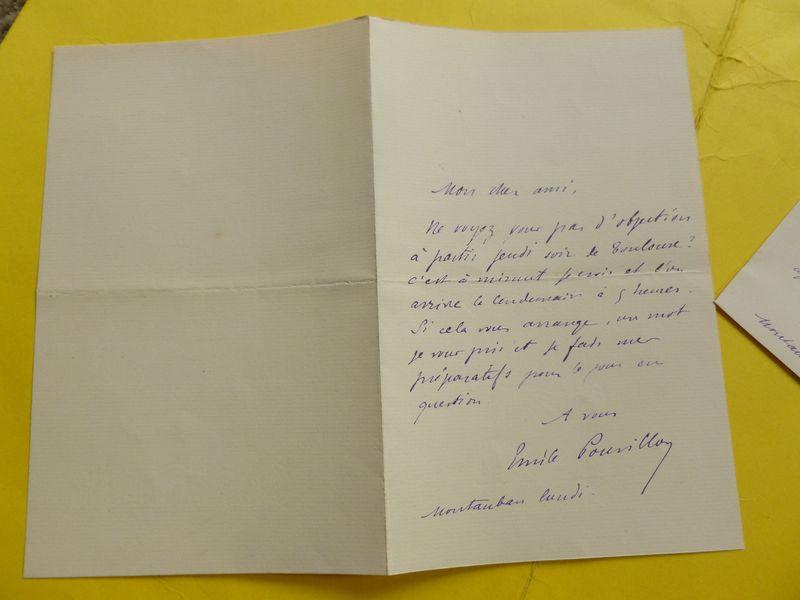 Mon cher ami,
Ne voyez vous pas d'objection
à partir jeudi soir de Toulouse?
c'est à minuit je crois et l'on
arrive le lendemain à 5 heures.
Si cela vous arrange, un mot
je vous prie et je fais mes
préparatifs pour le jour en
question
A vous
Emile Pouvillon
Montauban lundi.